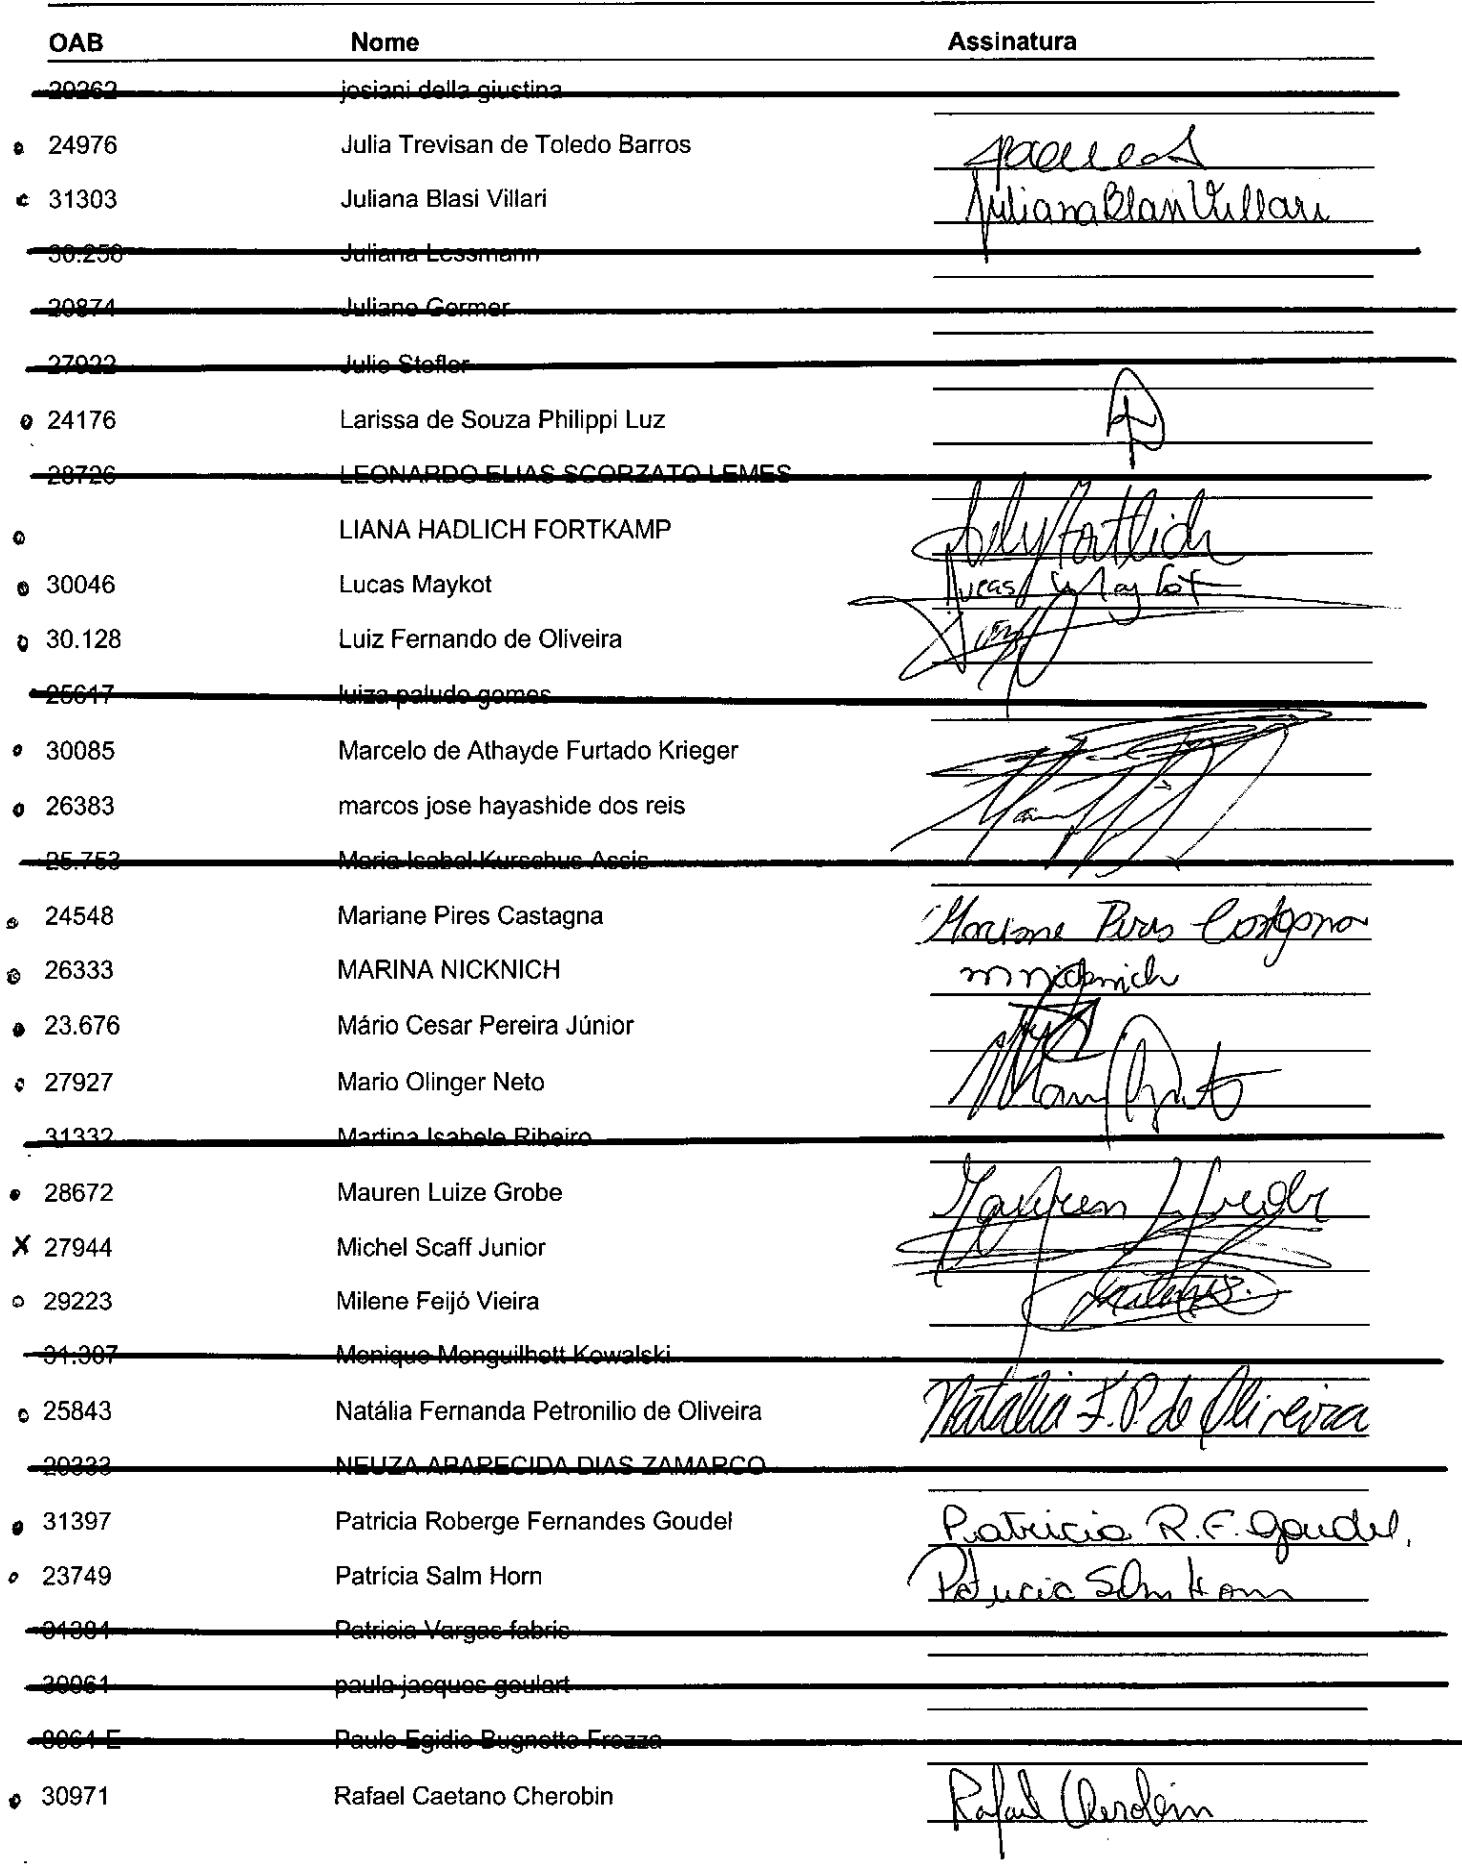 OAB Nome Assinatura
29262 josiani della giustina
24976 Julia Trevisan de Toledo Barros
31303 Juliana Blasi Villari Juliana Blasi Villari
30.256 Juliana Lessmann
20874 Juliano Germer
27922 Julio Stefler
24176 Larissa de Souza Philippi Luz
28726 LEONARDO ELIAS SCORZATO LEMES
LIANA HADLICH FORTKAMP
30046 Lucas Maykot Lucas Maykot
30.128 Luiz Fernando de Oliveira Luiz
25617 luiza paludo gomes
30085 Marcelo de Athayde Furtado Krieger
26383 marcos jose hayashide dos reis
25.753 Maria Isabel Kurschus Assis
24548 Mariane Pires Castagna Mariane Pires Castagna
26333 MARINA NICKNICH m nicknich
23.676 Mário Cesar Pereira Júnior
27927 Mario Olinger Neto
31332 Martina Isabele Ribeiro
28672 Mauren Luize Grobe Mauren
X 27944 Michel Scaff Junior
29223 Milene Feijó Vieira
31.307 Monique Menguilhott Kowalski
25843 Natália Fernanda Petronilio de Oliveira Natália F. P. de Oliveira
29333 NEUZA APARECIDA DIAS ZAMARCO
31397 Patricia Roberge Fernandes Goudel Patricia R. F. Goudel.
23749 Patrícia Salm Horn Patricia Salm Horn
31384 Patricia Vargas fabris
30061 jacques goulart
Egidio Bugnotto Frozza
30971 Rafael Caetano Cherobin Rafael Cherobin